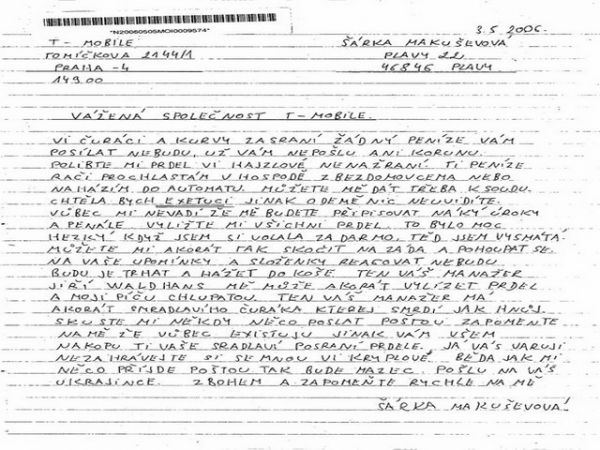 *N20060505MOI0009574*
3.5.2006.
T-MOBILE
ŠÁRKA MAKUŠEVOVÁ
TOMÍČKOVA 2144/1
PLAVY 22
PRAHA-4
46846 PLAVY
149.00
VÁŽENÁ SPOLEČNOST T-MOBILE.
VI ČURÁCI A KURVY ZASRANÍ ŽÁDNÝ PENÍZE VÁM
POSÍLAT NEBUDU, UŽ VÁM NEPOŠLU ANI KORUNU.
POLIBTE MI PRDEL VI HAJZLOVÉ NENAŽRANÍ TI PENÍZE
RAČI PROCHLASTÁM V HOSPODĚ Z BEZDOMOVCEMA NEBO
NAHÁZÍM DO AUTOMATU. MŮŽETE MĚ DÁT TŘEBA K SOUDU.
CHTĚLA BYCH EXETUCI JINAK ODEMĚ NIC NEUVIDÍTE.
VŮBEC MI NEVADÍ ŽE MĚ BUDETE PŘIPISOVAT ŇÁKÝ ÚROKY
A PENÁLE VYLIŽTE MI VŠICHNI PRDEL. TO BYLO MOC
HEZKÝ KDYŽ JSEM SI VOLALA ZADARMO, TEĎ JSEM VYSMÁTÁ
MŮŽETE MI AKORÁT TAK SKOČIT NA ZÁDA A POHOUPAT SE.
NA VAŠE UPOMÍNKY A SLOŽENKY REAGOVAT NEBUDU
BUDU JE TRHAT A HÁZET DO KOŠE TEN VÁŠ MANAŽER
JIŘÍ WALDHANS MĚ MŮŽE AKORÁT VYLÍZET PRDEL
A MOJI PÍČU CHLUPATOU. TEN VÁŠ MANAŽER MÁ
AKORÁT SMRADLAVÍHO ČURÁKA KTEREJ SMRDÍ JAK HNŮJ.
SKUSTE MI NĚKDY NĚCO POSLAT POŠTOU ZAPOMEŇTE
NA MĚ ŽE VŮBEC EXISTUJU JINAK VÁM VŠEM
NAKOPU TI VAŠE SRADLAVÍ POSRANÍ PRDELE, JÁ VÁS VARUJI
NEZAHRÁVEJTE SI SE MNOU VI KRYPLOVÉ. BĚDA JAK MI
NĚCO PŘIJDE POŠTOU TAK BUDE MAZEC. POŠLU NA VÁS
UKRAJINCE. ZBOHEM A ZAPOMEŇTE RYCHLE NA MĚ
ŠÁRKA MAKUŠEVOVÁ!